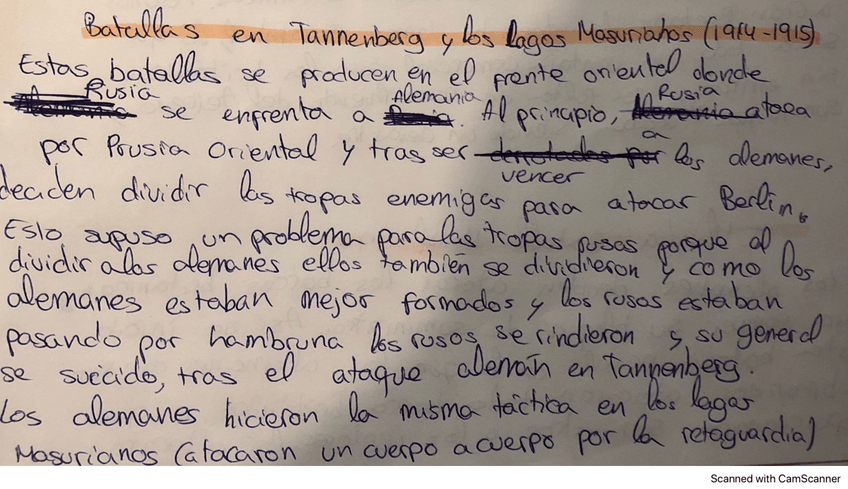 Batallas en Tannenberg y los lagos Masurianos (1914-1915)
Estas batallas se producen en el frente oriental donde
Rusia se enfrenta a Alemania Al principio, Rusia ataca
por Prusia Oriental y tras ser vencer a los alemanes,
deciden dividir las tropas enemigas para atacar Berlín.
Esto supuso un problema para las tropas rusas porque al
dividir a los alemanes ellos también se dividieron y como los
alemanes estaban mejor formados y los rusos estaban
pasando por hambruna los rusos se rindieron y su general
se suicido, tras el ataque alemán en Tannenberg.
Los alemanes hicieron la misma táctica en los lagos
Masurianos (atacaron un cuerpo a cuerpo por la retaguardia)
Scanned with CamScanner